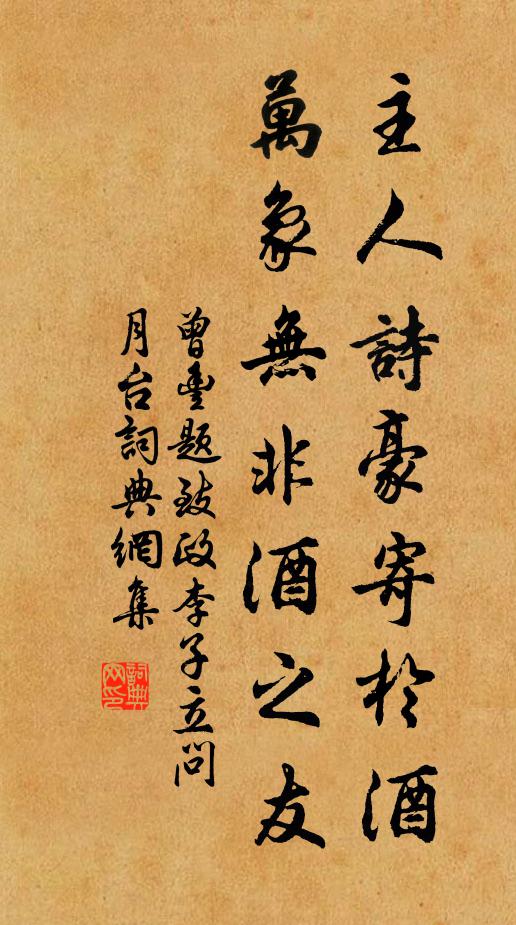 主人詩豪寄於酒
萬象無非酒之友
曾豐題致政李子立問
月台詞典網集
詞典网印